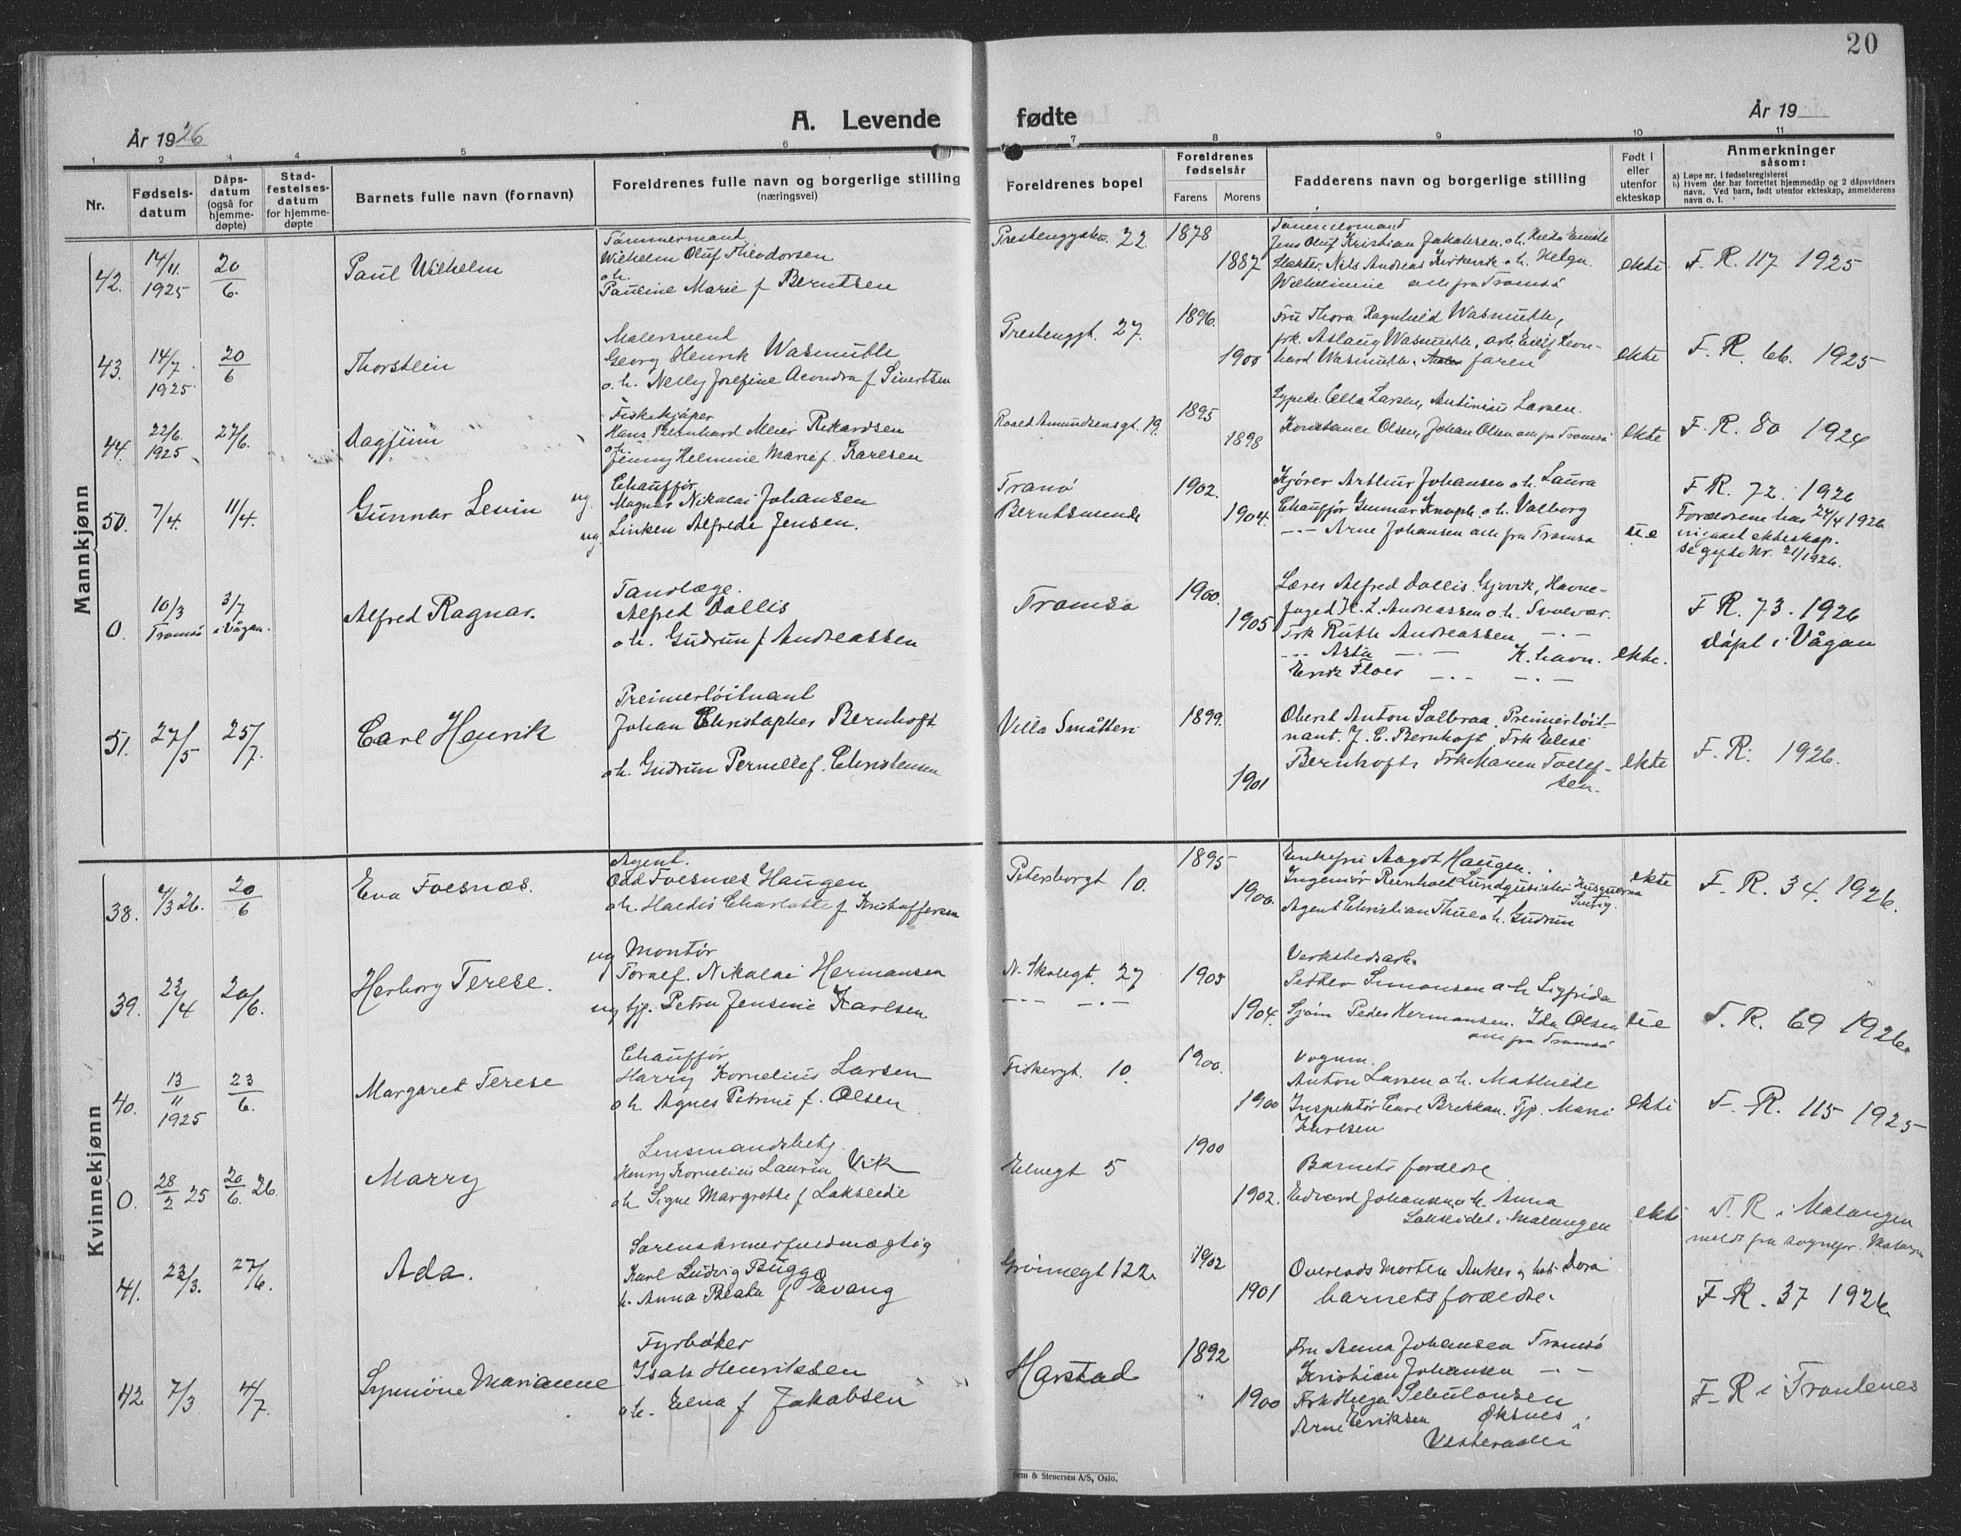 20
A. Levende fødte
År 1926
År 19
1 2 3 4 5 6 7 8 9 10 11
Nr.
Fødsels-
datum
Dåps-
datum
(også for
hjemme-
døpte)
Stad-
festelses-
datum
for hjemme-
døpte
Barnets fulle navn (fornavn)
Foreldrenes fulle navn og borgerlige stilling
(næringsvei)
Foreldrenes bopel
Foreldrenes
fødselsår
Farens Morens
Fadderens navn og borgerlige stilling
Født i
eller
utenfor
ekteskap
Anmerkninger
såsom:
a) Løpe nr. i fødselsregisteret
b) Hvem der har forrettet hjemmedåp og 2 dåpsvidners
navn. Ved barn, født utenfor ekteskap, anmelderens
navn o. l.
Mannkjønn
42. 14/11 1925 20/6. Paul Wilhelm
Tømmermand
Wilhelm Oluf Theodorsen
o.h.
Pauline Marie f Berntsen
22 1878 1887
Jens Oluf Kristian Jakobsen o.h.
Nils Andreas Kirkevik o.h. Helga
Wilhelmine alle fra Tromsø
ekte F. R. 117 1925
43. 14/7 1925 20/6 Thorstein
Malersvend
Georg Henrik Wasmuth
o.h. Nelly Josefine f Sivertsen
27. 1896. 1900
Fru Thora Ragnhild Wasmuth,
frk. Aslaug Wasmuth,
Wasmuth. faren
ekte F. R. 66. 1925
44. 22/6. 1925 27/6. Dagfinn
Fiskekjøper
Hans Bernhard Meier Rikardsen
o.
Jenny Helmine Marie f. Karlsen
Roald Amundsensgt. 19. 1895 1898
Cella Larsen, Antinius Larsen.
Konstance Olsen, Johan Olsen alle fra Tromsø
ekte F. R. 80 1924
50. 7/4. 11/4. Gunnar Levin
ug. Chauffør
Magnus Nikolai Johansen
ug. Linken Alfrede Jensen.
Tranø
1902. 1904.
Kjører Arthur Johansen o.h. Laura
Chauffør Gunnar Knoph o.h. Valborg
-·- Arne Johansen alle fra Tromsø
F R. 72. 1926
Forældrene har 24/4 1926
ekteskap.
se gifte Nr. 21/1926.
0. 10/3 Tromsø 3/7 i Vågan. Alfred Ragnar.
Tandlæge.
Alfred Dallis
o.h. Gudrun f Andreassen
Tromsø 1900. 1905
Lærer Alfred Dallis Gjøvik, Havne-
foged H. L. Andreassen o.h. Svolvær.
Frk Ruth Andreassen -·-
-·- Asta -·- K.havn.
Floer -·- -·-
ekte. F R. 73. 1926
døpt i Vågan
51. 27/5 25/7. Carl Henrik
Preimerløitnant
Johan Christopher Bernhoft
o.h. Gudrun Pernille f. Christensen
Villa Småtten 1899. 1901
Oberst Anton Solbraa. Preimerløit-
nant. J. C. Bernhoft Frk Elise
Bernhoft, Frk Karen Tollef-
sen.
ekte F. R. 1926.
Kvinnekjønn
38. 4/3 26. 20/6 Eva Foesnæs.
Agent.
Odd Foesnæs Haugen
o.h. Haldis Charlotte f Kristoffersen
Petersborgt 10. 1895 1900.
Enkefru Aagot Haugen.
Ingeniør Reinhold Lundquist
Agent Christian Thule o.h. Gudrun
ekte F. R. 34. 1926.
39. 23/4 20/6. Herborg Terese.
ug Montør
Toralf. Nikolai Hermansen
ug tjp. Petra Jensine Karlsen
N. Skolegt. 27 1903 1904.
Verkstedsarb.
Simonsen o h Sigfrida
Sjøm Peder Hermansen. Ida Olsen
alle fra Tromsø
F. R. 69 1926.
40. 13/11 1925 23/6. Margaret Terese
Chauffør
Harry Kornelius Larsen
o.h. Agnes Petrine f. Olsen
Fiskergt. 10. 1900. 1900
Vognm.
Anton Larsen o.h. Mathilde
Inspektør Brekkan. Tjp. Marie
Karlsen
ekte F. R. 115 1925
0. 28/2 25 20/6. 26. Marry
Lensmandsbetj.
Henry Kornelius Laurin Vik
o.h. Signe Margrethe f Lakseide
Elvegt 5 1900 1902.
Barnets forældre
Edvard Johansen o.h. Anna
Lakseidet i Malangen
ekte F. R i Malangen
meldt fra sognepr. Malangen
41. 22/3. 27/6. Ada.
Sorenskriverfuldmægtig
Karl Ludvig Bugge
h. Anna Beata f Evang
Grønnegt 122. 1902 1901
Overlods Morten Anker og hst. Dora
barnets forældre.
F. R. 37 1926
42 7/3 4/7. Synnøve Marianne
Fyrbøter
Isak Henriksen
o.h. Elna f Jakobsen
Harstad 1892 1900
Fru Anna Johansen Tromsø
Kristian Johansen -·-
Frk Helga
Arne Eriksen Øksnes i
Vesteraalen
F. R i Trondenes
Sem & Stenersen A/S, Oslo.